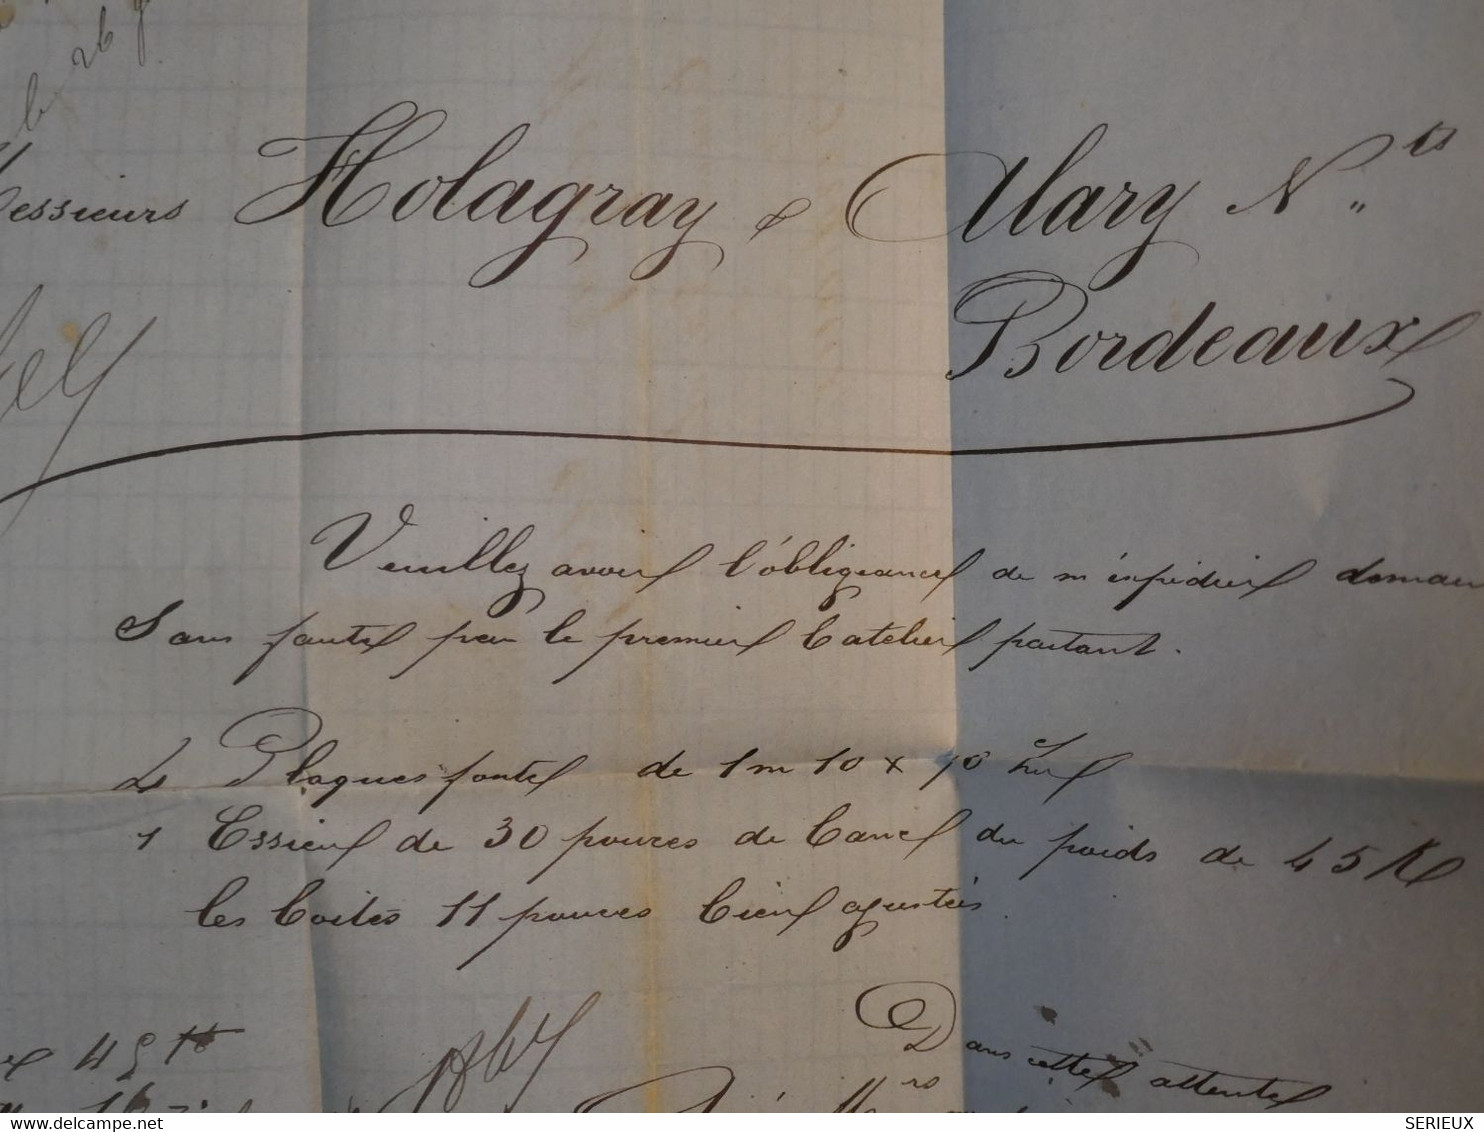 Messieurs Holagray & Alary Nts
Bordeaux
Veuillez avoir l'obligeance de m'expédier demain
Sans faute par le premier batelier partant.
2 Plaques fonte de 1m 10 x 70
1 Essieu de 30 pouces de Carré du poids de 45 K
les boites 11 pouces bien ajustées
Dans cette attente
SERIEUX
www.delcampe.net